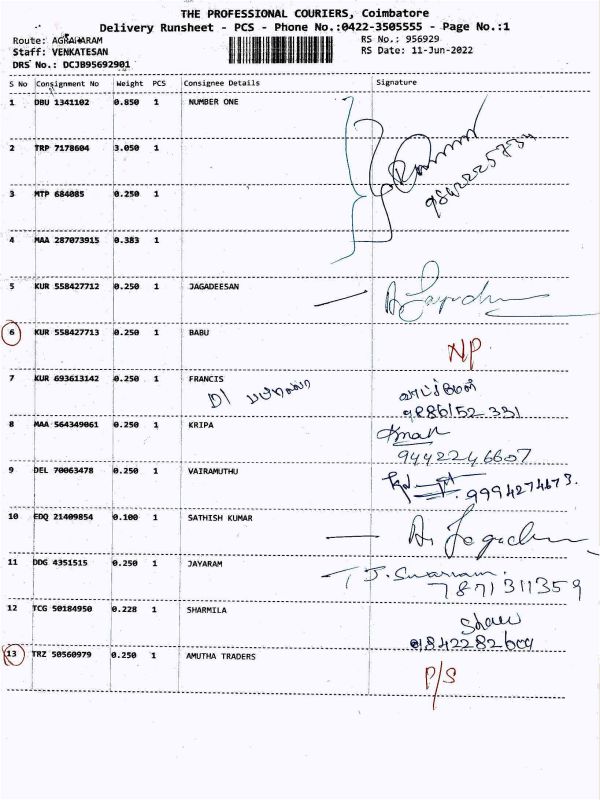 THE PROFESSIONAL COURIERS, Coimbatore
Delivery Runsheet - PCS - Phone No.:0422-3505555 - Page No.:1
Route: AGRAHARAM RS No.: 956929
Staff: VENKATESAN RS Date: 11-Jun-2022
DRS No.: DCJB95692901
S No Consignment No Weight PCS Consignee Details Signature
1 DBU 1341102 0.850 1 NUMBER ONE
2 TRP 7178604 3.050 1
9842225734
3 MTP 684085 0.250 1
4 MAA 287073915 0.383 1
5 KUR 558427712 0.250 1 JAGADEESAN
6 KUR 558427713 0.250 1 BABU
NP
7 KUR 693613142 0.250 1 FRANCIS
D/
9886152331
8 MAA 564349061 0.250 1 KRIPA
9442246607
9 DEL 70063478 0.250 1 VAIRAMUTHU
9994274673.
10 EDQ 21409854 0.100 1 SATHISH KUMAR
11 DDG 4351515 0.250 1 JAYARAM
7871311359
12 TCG 50184950 0.228 1 SHARMILA
9842282609
13 TRZ 50560979 0.250 1 AMUTHA TRADERS
P/S